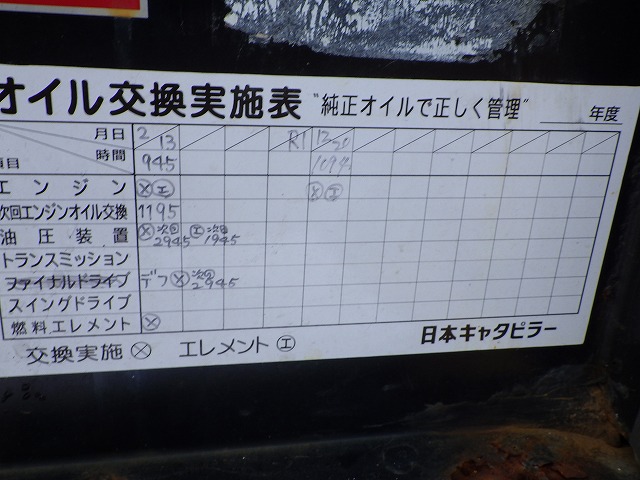 オイル交換実施表 "純正オイルで正しく管理" 年度
月日 2/13 R1 12/
項目 時間 945
エンジン ⓧ エ ⓧ エ
次回エンジンオイル交換 1195
油圧装置 ⓧ 次回2945 エ 次回1945
トランスミッション
ファイナルドライブ デフ ⓧ 次回2945
スイングドライブ
燃料エレメント ⓧ
交換実施 ⓧ エレメント エ
日本キャタピラー